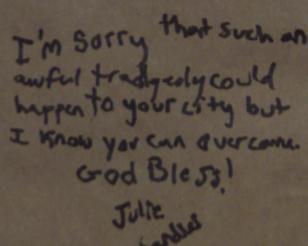 I'm sorry that such an
awful tradgedy could
happen to your city but
I know you can overcome.
God Bless!
Julie